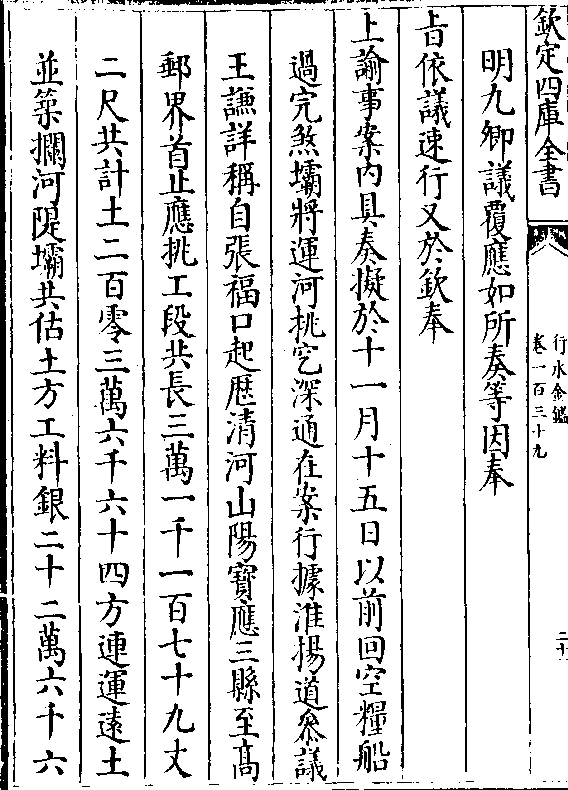 欽定四庫全書
行水金鑑
卷一百三十九
明九卿議覆應如所奏等因奉
㫖依議速行又於欽奉
上諭事案内具奏擬於十一月十五日以前回空糧船
過完煞壩將運河挑穵深通在案行據淮揚道叅議
王謙詳稱自張福口起歴清河山陽寶應三縣至髙
郵界首止應挑工段共長三萬一千一百七十九丈
二尺共計土二百零三萬六千六十四方連運逺土
並築攔河隄壩共估土方工料銀二十二萬六千六